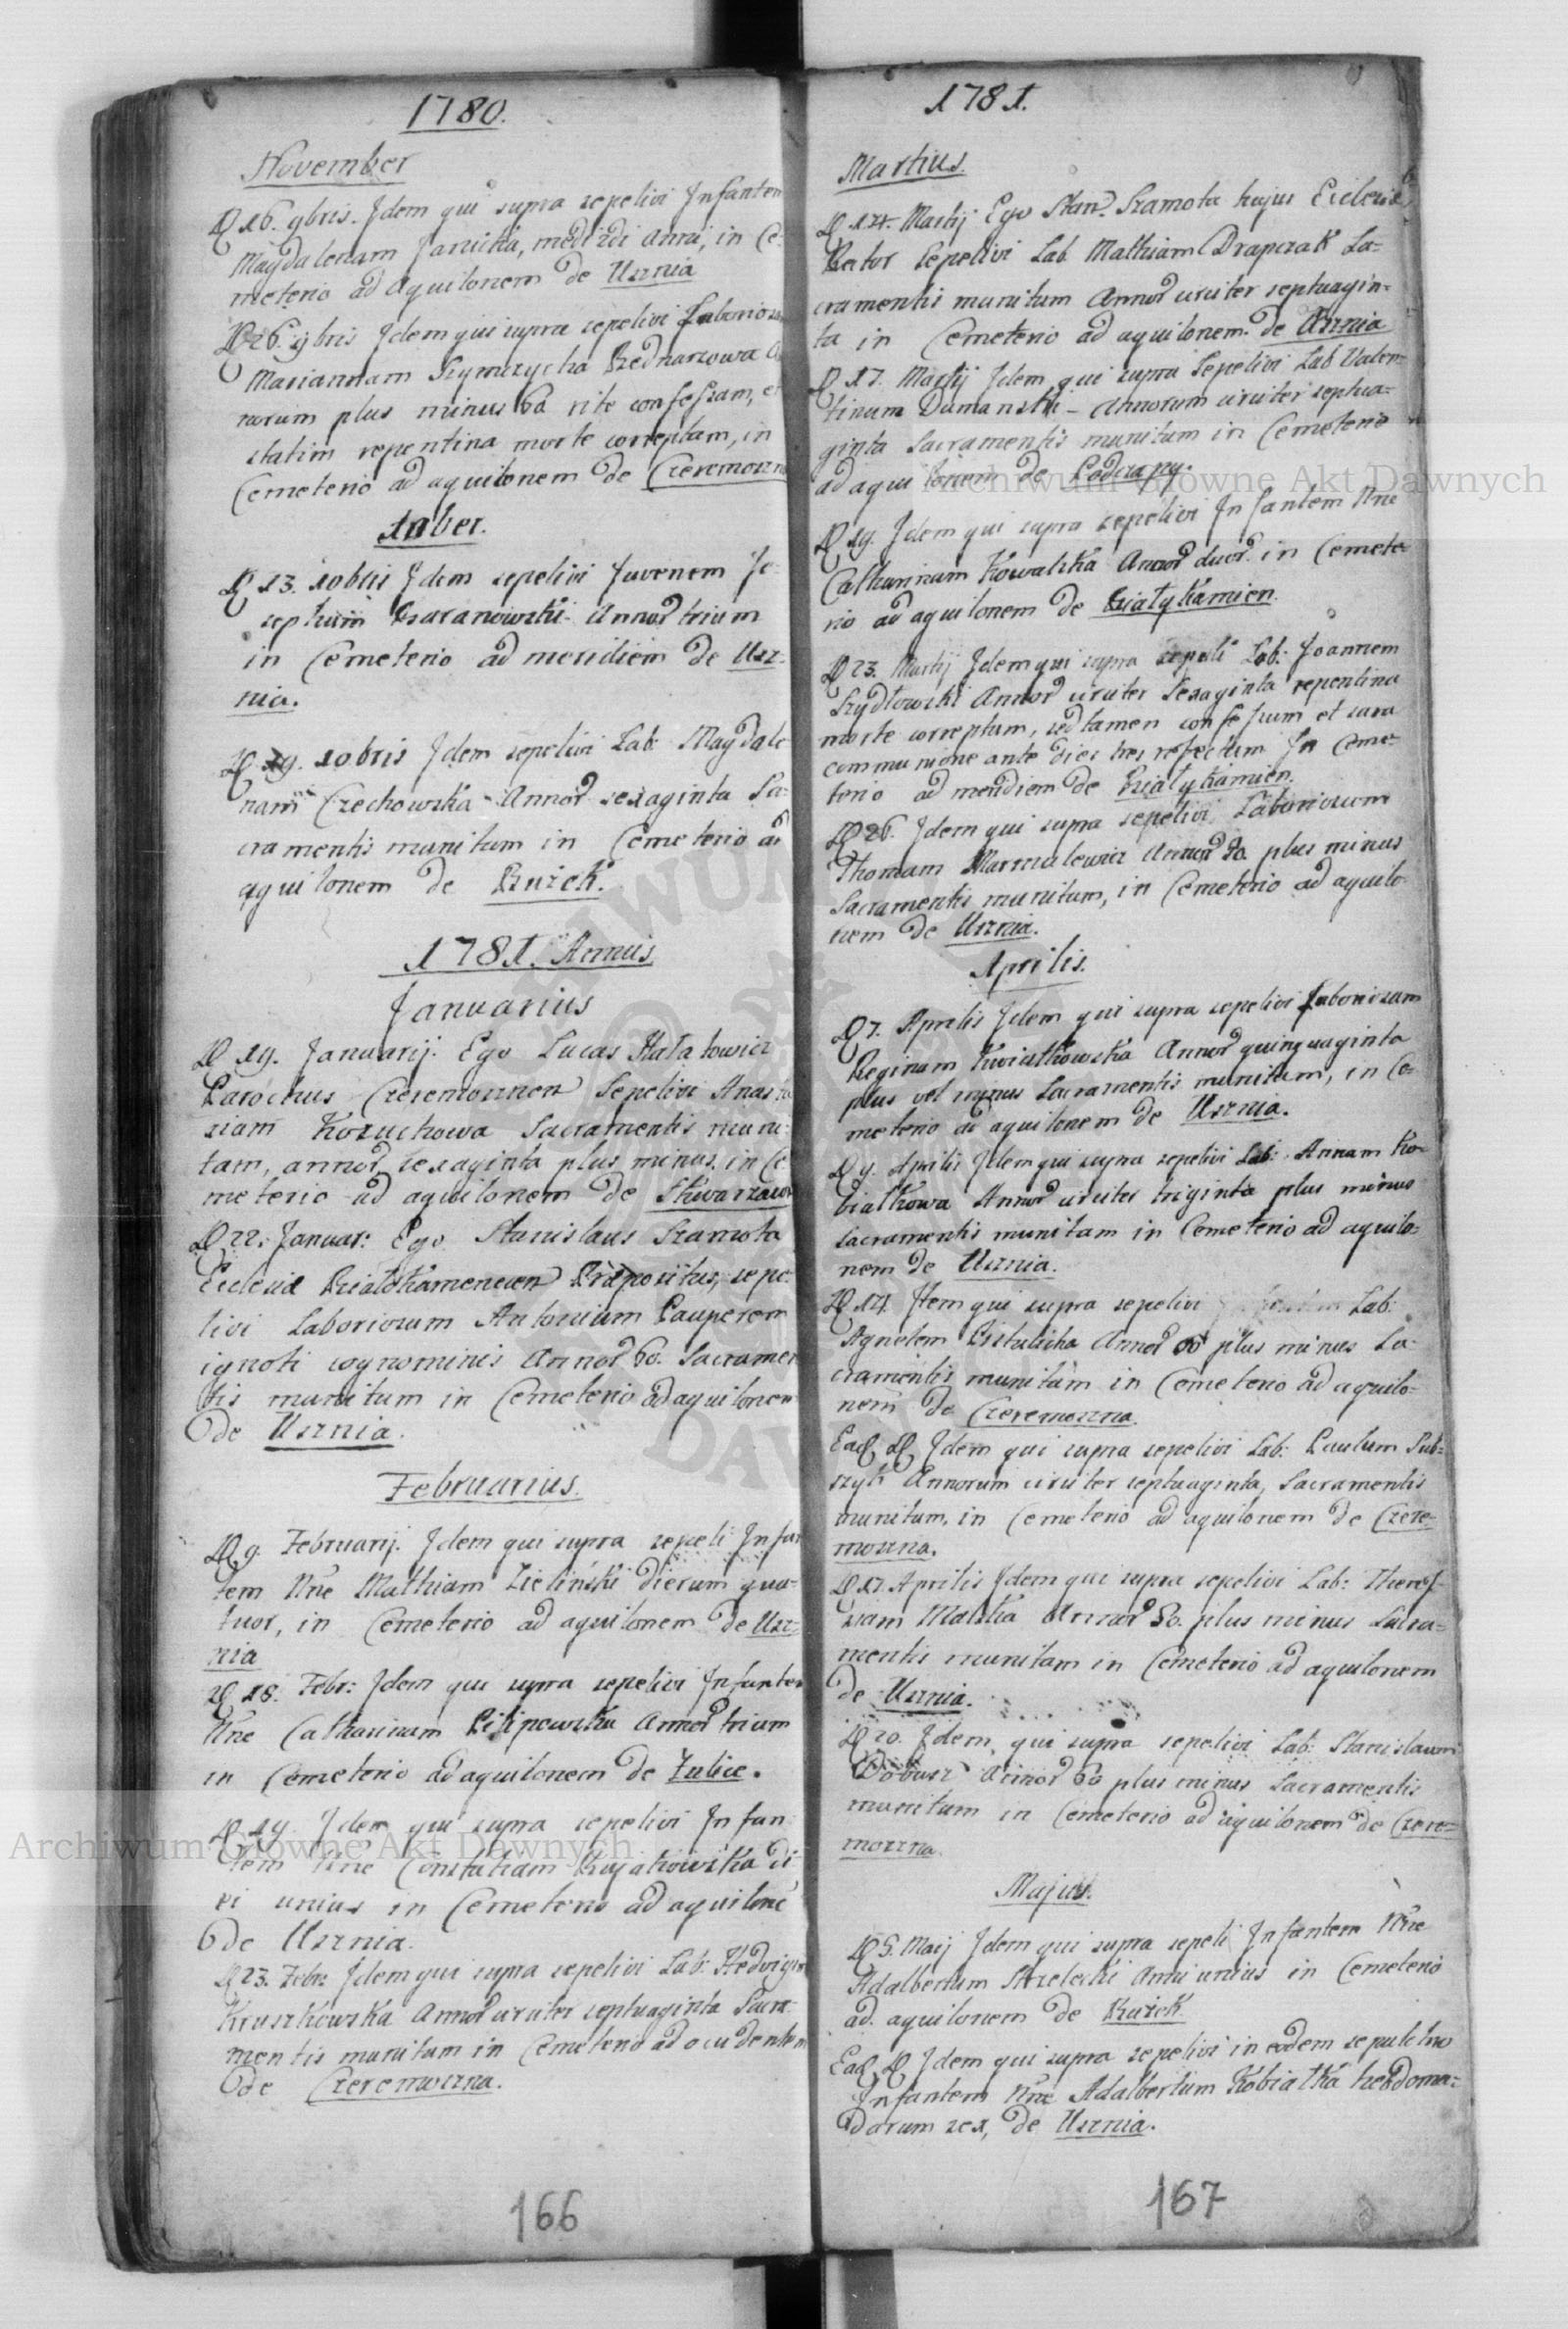 1780.
November
D 16. 9bris. Idem qui supra sepelivi Infantem
Magdalenam Janicka, medi anni, in Ce-
meterio ad Aquilonem de Usznia
D 26. 9bris Idem qui supra sepelivi
Mariannam Bednarzowa
norum plus minus 60 rite confessam, et
statim repentina morte correptam, in
Cemeterio ad aquilonem de Czeremoszna
10ber.
D 13. 10bris Idem sepelivi Juvenem Jo-
sephum Baranowski Annor trium
in Cemeterio ad meridiem de Usz-
nia.
D 19. 10bris Idem sepelivi Lab: Magdale
nam Czechowska Annor sexaginta Sa-
cramentis munitam in Cemeterio ad
aquilonem de Buzek.
1781. Annus
Januarius
D 19. Januarij. Ego Lucas
Parochus Czeremosznen Sepelivi
Kozuchowa Sacramentis muni-
tam, annor sexaginta plus minus, in Ce
meterio ad aquilonem de
D 22: Januar: Ego Stanislaus Szamota
Ecclesiæ Præpositus, sepe-
livi Laboriosum Antonium Pauperem
ignoti cognominis Annor 60. Sacramen
tis munitum in Cemeterio ad aquilonem
de Usznia.
Februarius.
D 9. Februarij. Idem qui supra sepeli Infan
tem Nne Mathiam Zielinski dierum qua-
tuor, in Cemeterio ad aquilonem de Usz-
nia
D 18. Febr: Idem qui supra sepelivi Infantem
Nne Catharinam Annor trium
in Cemeterio ad aquilonem de Zulice.
D 19. Idem qui supra sepelivi Infan
tem Nne di
ei unius in Cemeterio ad aquilone
de Usznia.
D 23. Febr: Idem qui supra sepelivi Lab: Hedvigem
Kruszkowska Annor circiter septuaginta Sacra-
mentis munitam in Cemeterio ad occidentem
de Czeremoszna.
166
1781.
Martius.
D 14. Martij Ego Stan. Szamota hujus Ecclesiæ
Rector Sepelivi Lab Mathiam Drapczak Sa-
cramentis munitum Annor circiter septuagin-
ta in Cemeterio ad aquilonem de Usznia
D 17. Martij Idem qui supra Sepelivi Lab Valen-
tinum Dumanski Annorum circiter septua-
ginta Sacramentis munitum in Cemeterio
ad aquilonem de
D 19. Idem qui supra sepelivi Infantem Nne
Catharinam Kowalska Annor duor. in Cemete-
rio ad aquilonem de Białykamien.
D 23. Martij Idem qui supra sepeli Lab: Joannem
Szydłowski Annor circiter Sexaginta repentina
morte correptum, sed tamen confessum et sacra
communione ante dies tres refectum In Ceme-
terio ad meridiem de Białykamien.
D 26. Idem qui supra sepelivi Laboriosum
Thomam Annor plus minus
Sacramentis munitum, in Cemeterio ad aquilo-
nem de Usznia.
Aprilis.
D 7. Aprilis Idem qui supra sepelivi Laboriosam
Reginam Kwiatkowska Annor quinquaginta
plus vel minus Sacramentis munitam, in Ce-
meterio ad aquilonem de Usznia.
D 9. Aprilis Idem qui supra sepelivi Lab: Annam Ko-
białkowa Annor circiter triginta plus minus
sacramentis munitam in Cemeterio ad aquilo-
nem de Usznia.
D 14. Item qui supra sepelivi Lab:
Agnetem Annor plus minus Sa-
cramentis munitam in Cemeterio ad aquilo-
nem de Czeremoszna.
Ead D Idem qui supra sepelivi Lab: Paulum
Annorum circiter septuaginta, Sacramentis
munitum, in Cemeterio ad aquilonem de Czere-
moszna.
D 17 Aprilis Idem qui supra sepelivi Lab: Theres-
siam Annor 50. plus minus Sacra-
mentis munitam in Cemeterio ad aquilonem
de Usznia.
D 20. Idem qui supra sepelivi Lab: Stanislaum
Annor 60 plus minus Sacramentis
munitum in Cemeterio ad aquilonem de Czere-
moszna.
Majus.
D 5. Maij Idem qui supra sepeli Infantem Nne
Adalbertum Strzelecki Anni unius in Cemeterio
ad aquilonem de Buzek
Ead D Idem qui supra sepelivi in eodem sepulchro
Infantem Nne Adalbertum Kobiałka hebdoma-
darum sex, de Usznia.
167
Archiwum Główne Akt Dawnych
Archiwum Główne Akt Dawnych